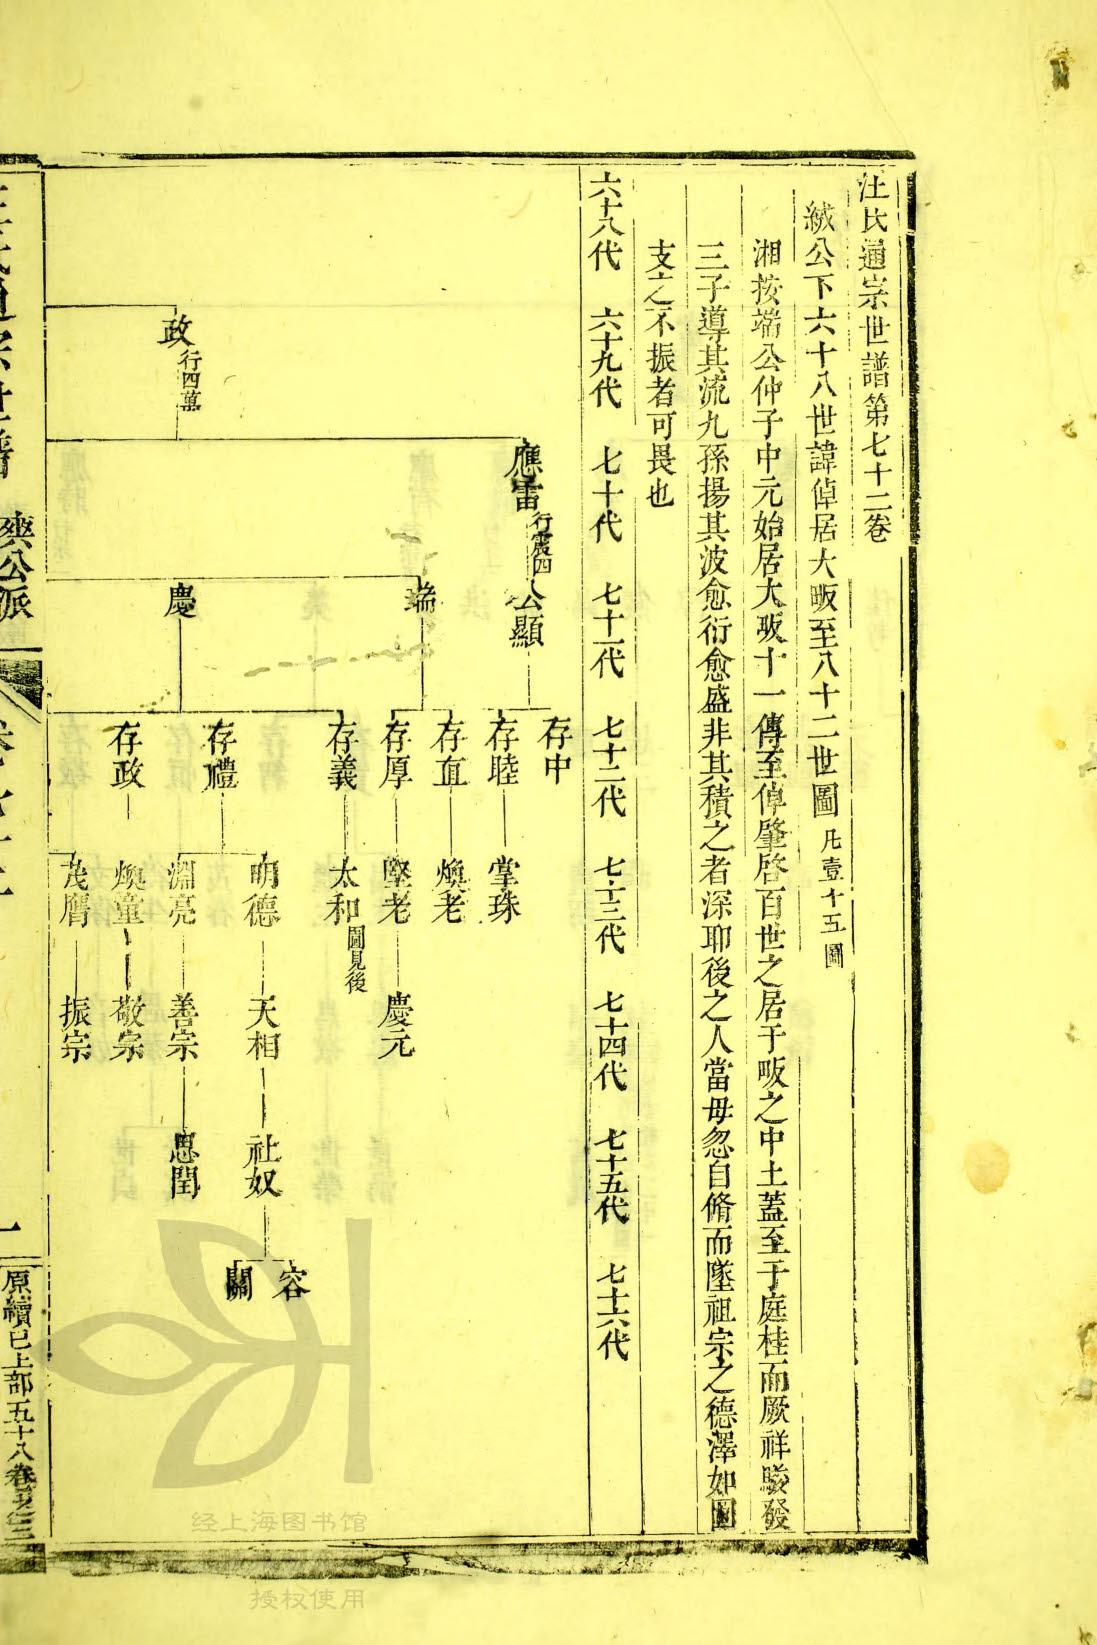 汪氏通宗世譜第七十二卷
絨公下六十八世諱倬居大畈至八十二世圖 凡壹十五圖
湘按端公仲子中元始居大畈十一傳至倬肇啓百世之居于畈之中土蓋至于庭桂而厥祥駿發
三子導其流九孫揚其波愈衍愈盛非其積之者深耶後之人當毋忽自脩而墜祖宗之德澤如圖
支之不振者可畏也
六十八代 六十九代 七十代 七十一代 七十二代 七十三代 七十四代 七十五代 七十六代
存中
應雷 行震四 公顯
存睦 掌珠
存直 煥老
端 存厚 堅老 慶元
存義 太和 圖見後
容
明德 天相 社奴
關
存禮
政 行四萬
慶 淵亮 善宗 思閏
存政 煥童 敬宗
茂膺 振宗
汪氏通宗世譜 爽公派
一
原續巳上部五十八卷
经上海图书馆
授权使用